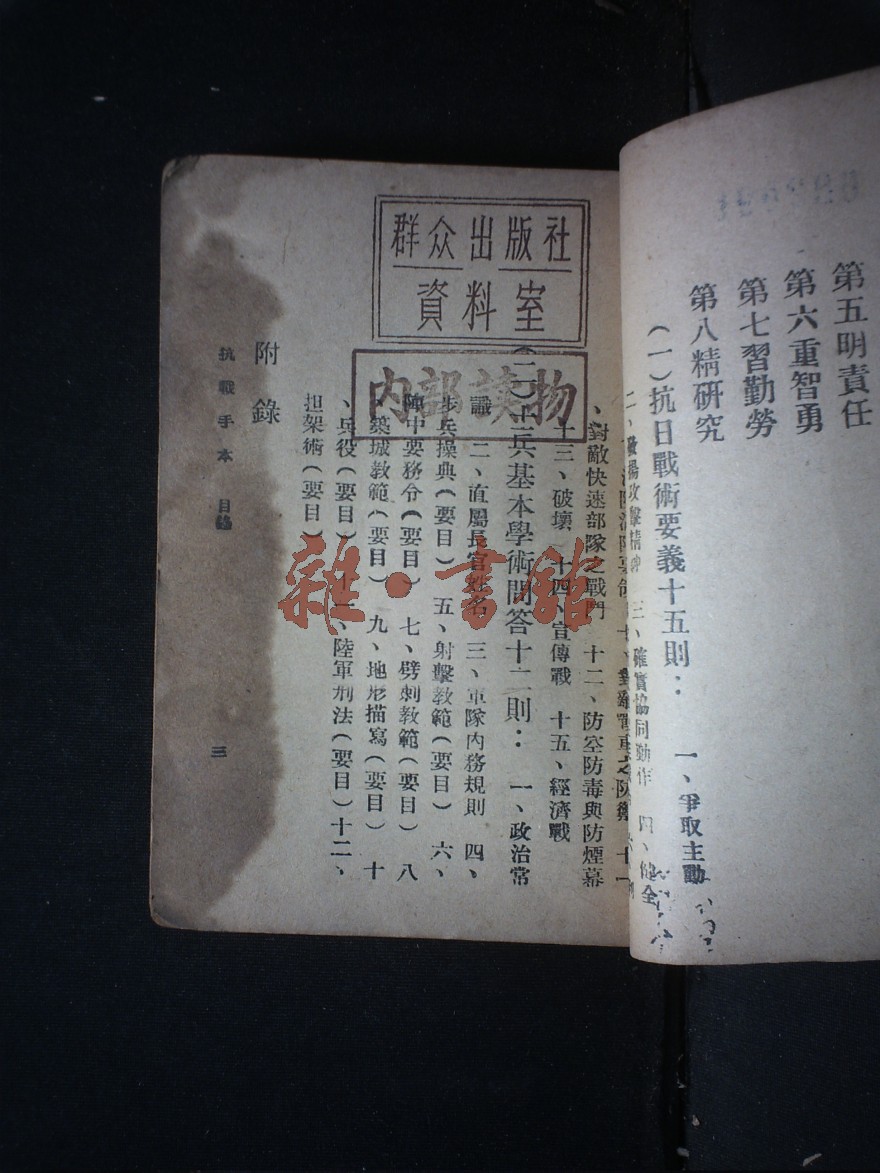 第五明責任
第六重智勇
第七習勤勞
第八精研究
(一)抗日戰術要義十五則: 一、爭取主動
二、發揚攻擊精神 三、確實協同動作 四、健全
十一
、對敵快速部隊之戰鬥 十二、防空防毒與防煙幕
十三、破壞 十四、宣傳戰 十五、經濟戰
(二)士兵基本學術問答十二則: 一、政治常
識 二、直屬長官姓名 三、軍隊內務規則 四、
步兵操典(要目) 五、射擊教範(要目) 六、
陣中要務令(要目) 七、劈刺教範(要目) 八
、築城教範(要目) 九、地形描寫(要目) 十
、兵役(要目)十一、陸軍刑法(要目)十二、
担架術(要目)
附錄
抗戰手本 目錄
三
群众出版社
資料室
内部读物
雜·書館